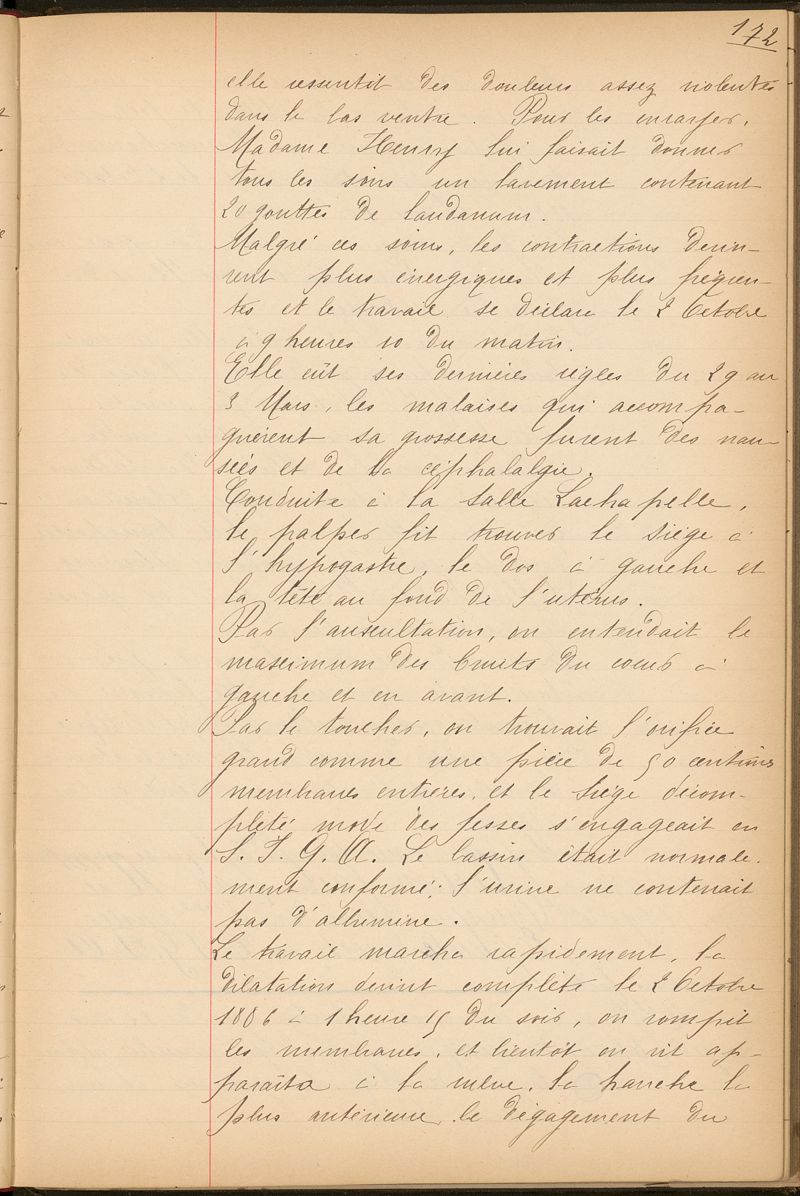 172
elle ressentit des douleurs assez violentes
dans le bas ventre. Pour les enrayer,
Madame Henry lui faisait donner
tous les soirs un lavement contenant
20 gouttes de laudanum.
Malgré ces soins, les contractions devin-
rent plus énergiques et plus fréquen-
tes et le travail se déclara le 2 Octobre
à 9 heures 10 du matin.
Elle eût ses dernières règles du 29 au
3 Mars, les malaises qui accompa-
gnèrent sa grossesse furent des nau-
sées et de la céphalalgie.
Conduite à la salle Lachapelle,
le palper fit trouver le siège à
l'hypogastre, le dos à gauche et
la tête au fond de l'utérus.
Par l'auscultation, on entendait le
maximum des bruits du coeur à
gauche et en avant.
Par le toucher, on trouvait l'orifice
grand comme une pièce de 50 centimes
membranes entières, et le siège décom-
plété mode des fesses s'engageait en
S. I. G. A. Le bassin était normale-
ment conformé; l'urine ne contenait
pas d'albumine.
Le travail marcha rapidement, la
dilatation devint complète le 2 Octobre
1886 à 1 heure 15 du soir, on rompit
les membranes, et bientôt on vit ap-
paraître à la vulve, la hanche la
plus antérieure, le dégagement du